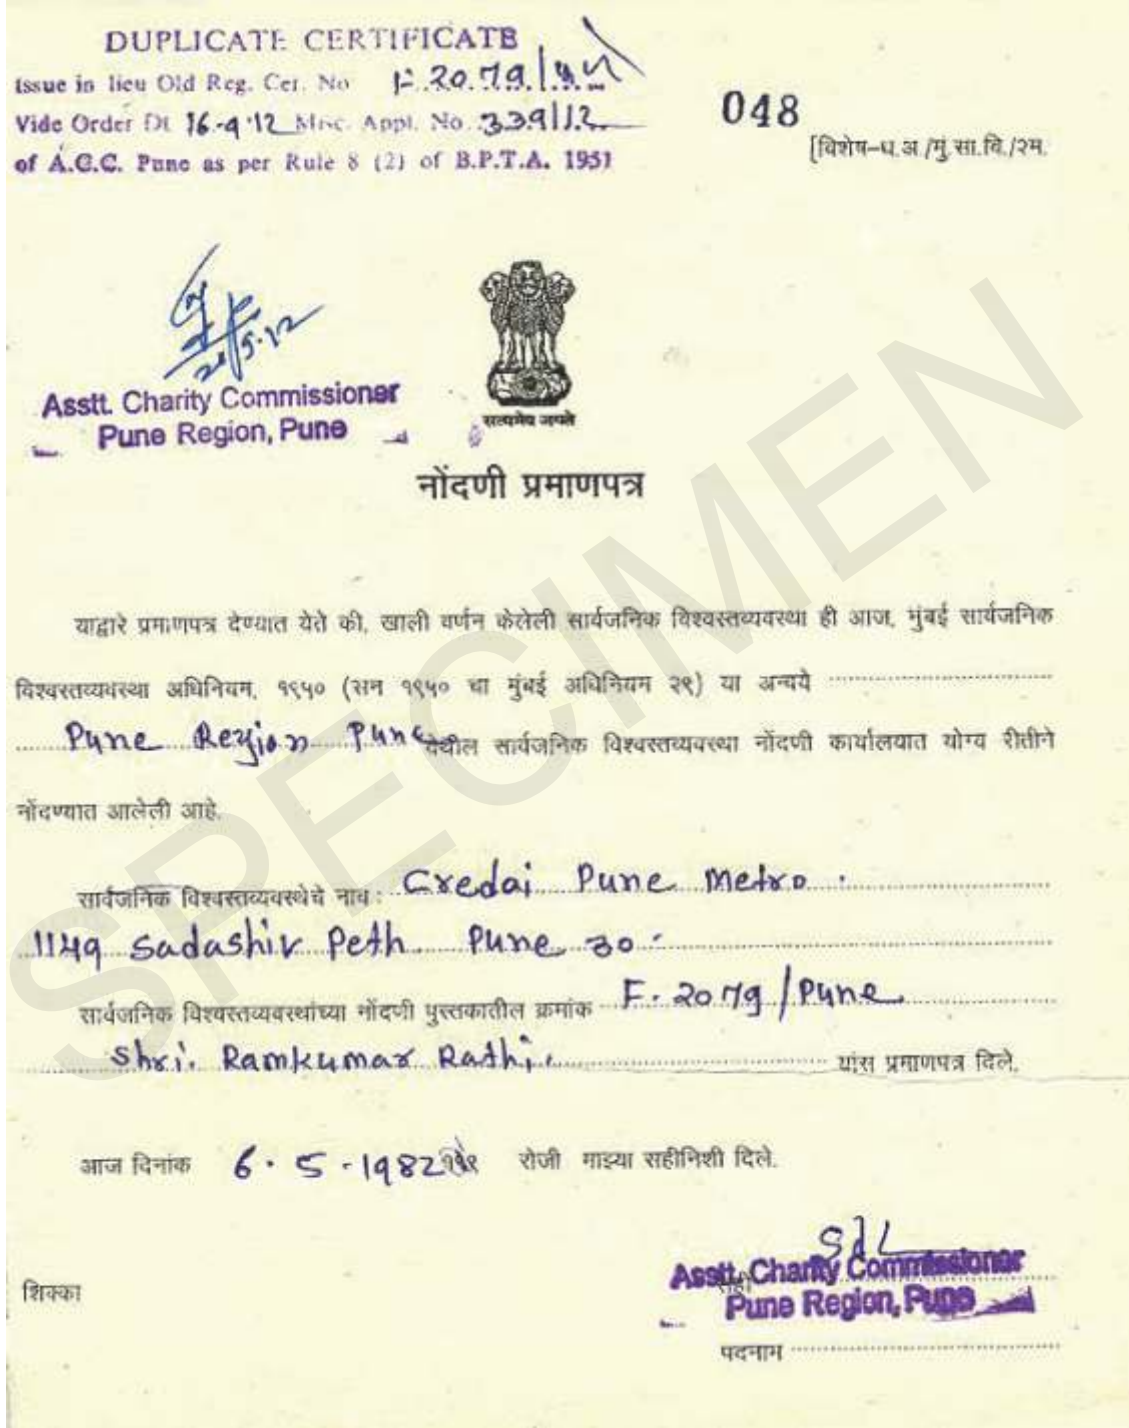 DUPLICATE CERTIFICATE
Issue in lieu Old Reg. Cer. No F.2079/पुणे
Vide Order Dt 16-9-12 Misc. Appl. No. 339/12
of A.C.C. Pune as per Rule 8 (2) of B.P.T.A. 1951
048
[विशेष-ध.अ./मुं.सा.वि./२म.
Asstt. Charity Commissioner
Pune Region, Pune
सत्यमेव जयते
नोंदणी प्रमाणपत्र
याद्वारे प्रमाणपत्र देण्यात येते की, खाली वर्णन केलेली सार्वजनिक विश्वस्तव्यवस्था ही आज, मुंबई सार्वजनिक
विश्वस्तव्यवस्था अधिनियम, १९५० (सन १९५० चा मुंबई अधिनियम २९) या अन्वये
Pune Region Pune येथील सार्वजनिक विश्वस्तव्यवस्था नोंदणी कार्यालयात योग्य रीतीने
नोंदण्यात आलेली आहे.
सार्वजनिक विश्वस्तव्यवस्थेचे नाव : Credai Pune Metro.
1149 Sadashiv Peth Pune 30.
सार्वजनिक विश्वस्तव्यवस्थांच्या नोंदणी पुस्तकातील क्रमांक F.2079/Pune
Shri. Ramkumar Rathi. यांस प्रमाणपत्र दिले.
आज दिनांक 6.5-1982 रोजी माझ्या सहीनिशी दिले.
Sd/-
Asstt. Charity Commissioner
सही
Pune Region, Pune
शिक्का
पदनाम
SPECIMEN